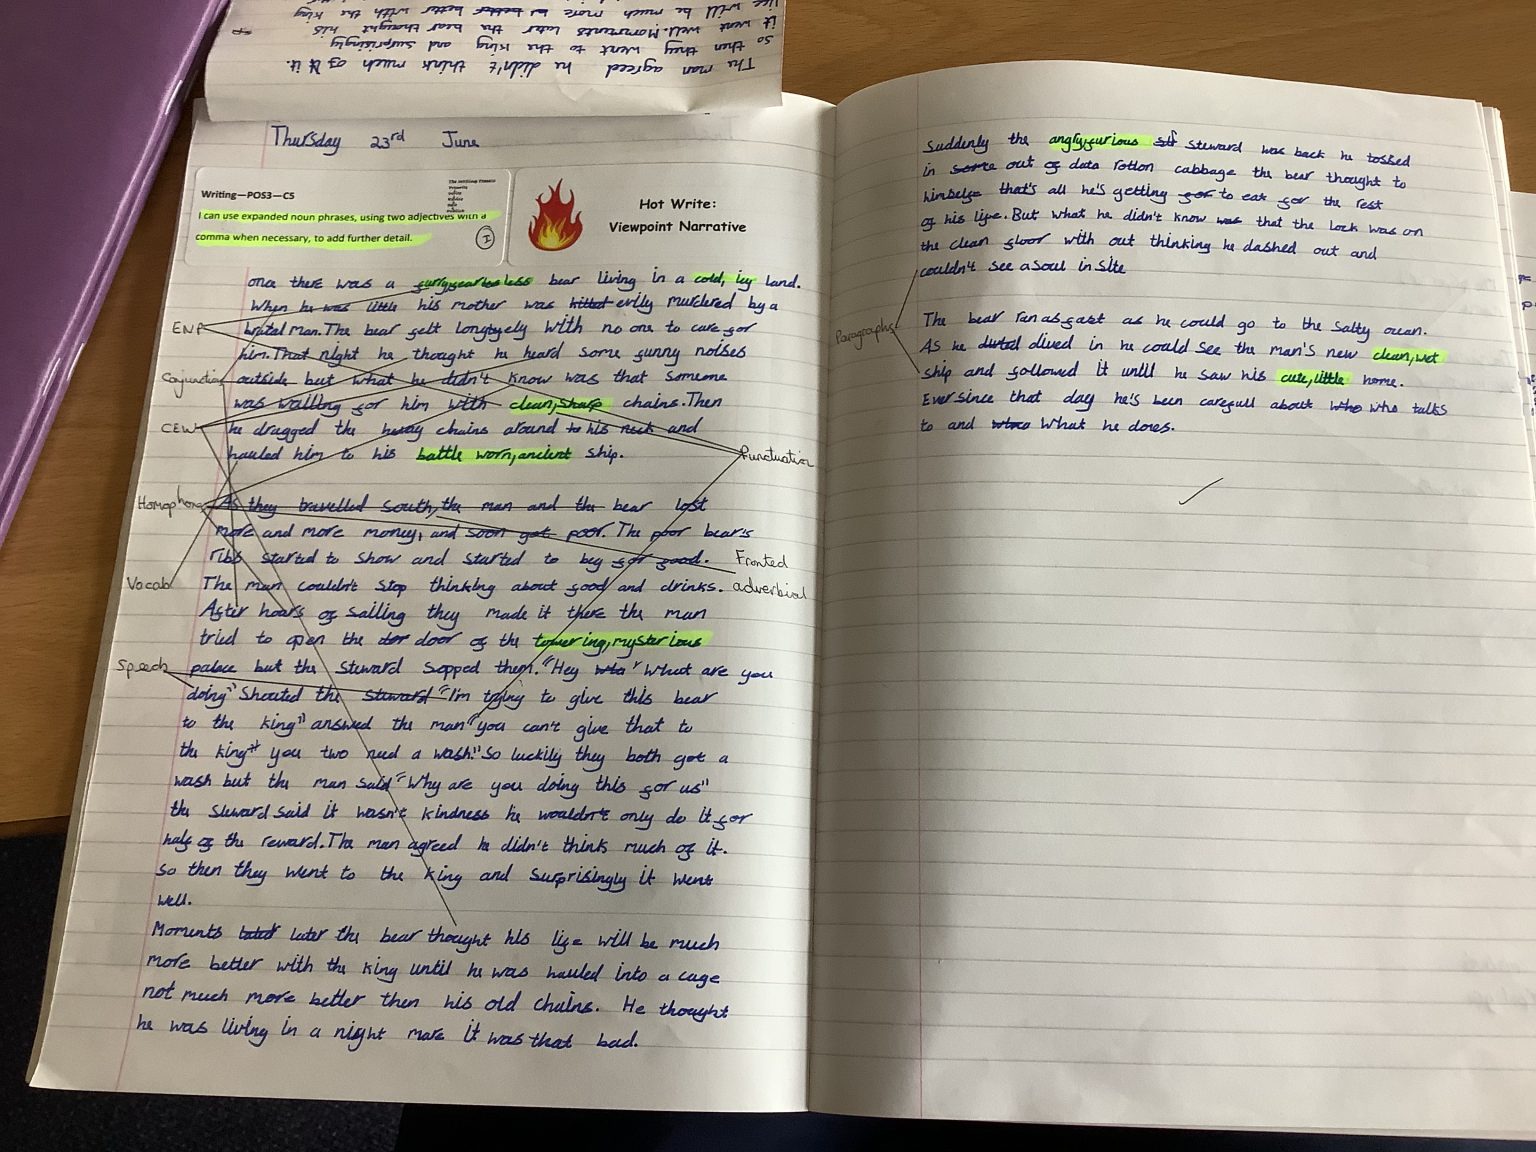 The man agreed he didn't think much of it.
so then they went to the king and surprisingly
it went well. Momments later the bear thought his
life will be much more better with the king
Thursday 23rd June
Writing—POS3—CS
I can use expanded noun phrases, using two adjectives with a
comma when necessary, to add further detail.
I
Hot Write:
Viewpoint Narrative
once there was a bear living in a cold, icy land.
When he was little his mother was killed evily murdered by a
man. The bear felt with no one to care for
him. That night he thought he heard some funny noises
outside but what he didn't know was that someone
was waiting for him with clean, sharp chains. Then
he dragged the chains around to his neck and
hauled him to his battle worn, ancient ship.
As they travelled south, the man and the bear lost
more and more money, and soon got poor. The poor bear's
ribs started to show and started to beg for food.
The man couldn't stop thinking about food and drinks.
After hours of sailing they made it there the man
tried to open the dor door of the towering, mysterious
palace but the steward sopped them. "Hey wha" What are you
doing" Shouted the steward "I'm trying to give this bear
to the king" answed the man "you can't give that to
the king" you two need a wash." So luckily they both got a
wash but the man said "Why are you doing this for us"
the steward said it wasn't kindness he wouldn't only do it for
half of the reward. The man agreed he didn't think much of it.
so then they went to the king and surprisingly it went
well.
Moments later the bear thought his life will be much
more better with the king until he was hauled into a cage
not much more better then his old chains. He thought
he was living in a night mare it was that bad.
ENP
Conjunction
CEW
Homophone
Vocab
Speech
Punctuation
Fronted
adverbial
Suddenly the angry, furious steward was back he tossed
in some out of date rotton cabbage the bear thought to
himbelf that's all he's getting for to eat for the rest
of his life. But what he didn't know was that the lock was on
the clean floor with out thinking he dashed out and
couldn't see a soul in site
Paragraphs
The bear ran as fast as he could go to the salty ocean.
As he dived in he could see the man's new clean, wet
ship and followed it until he saw his cute, little home.
Ever since that day he's been carefull about who who talks
to and what he does.